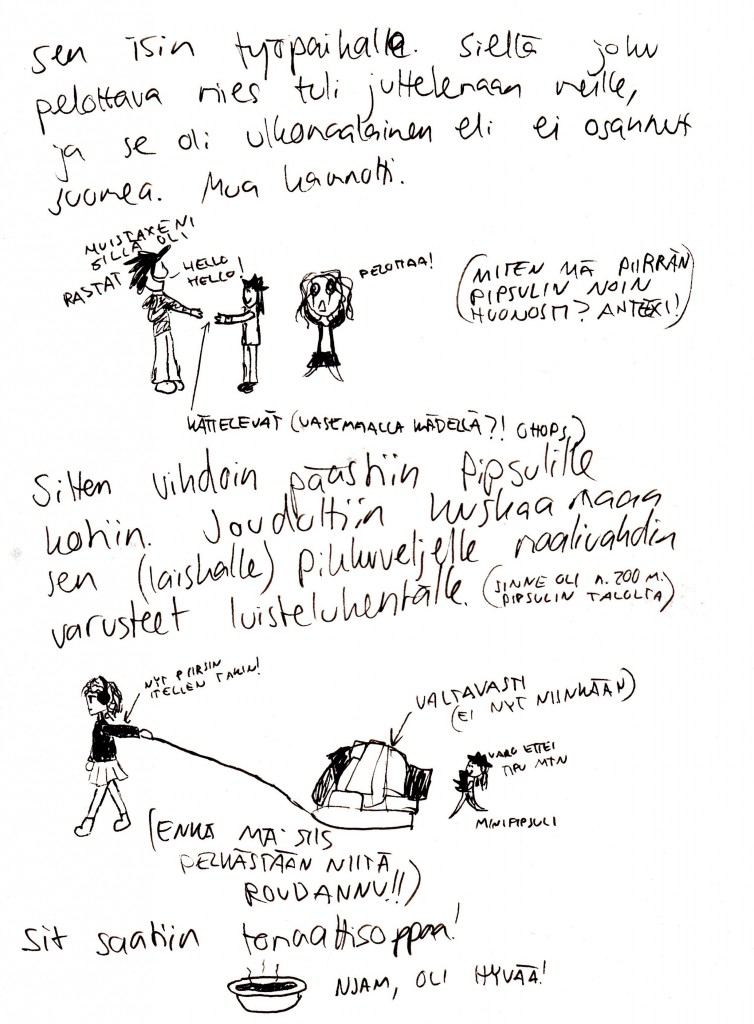 sen isin työpaikalla. Sieltä joku
pelottava mies tuli juttelemaan meille,
ja se oli ulkomaalainen eli ei osannut
suomea. Mua kauhotti.
MUISTAXENI
SILLÄ OLI
RASTAT
HELLO
HELLO!
PELOTTAA!
(MITEN MÄ PIIRRÄN
PIPSULIN NOIN
HUONOSTI? ANTEEXI!)
KÄTTELEVÄT (VASEMMALLA KÄDELLÄ?! OHOPS)
Sitten vihdoin päästiin Pipsulille
kotiin. Jouduttiin kuskaamaan
sen (laiskalle) pikkuveljelle maalivahdin
varusteet luistelukentälle. (SINNE OLI N. 200 M.
PIPSULIN TALOLTA)
NYT PIIRSIN
ITELLEN TAKIN!
VALTAVASTI
(EI NYT NIINKÄÄN)
VARO ETTEI
TIPU MTN
MINIPIPSULI
(ENKÄ MÄ SIIS
PELKÄSTÄÄN NIITÄ
ROUDANNU!!)
Sit saatiin tomaattisoppaa!
NJAM, OLI HYVÄÄ!